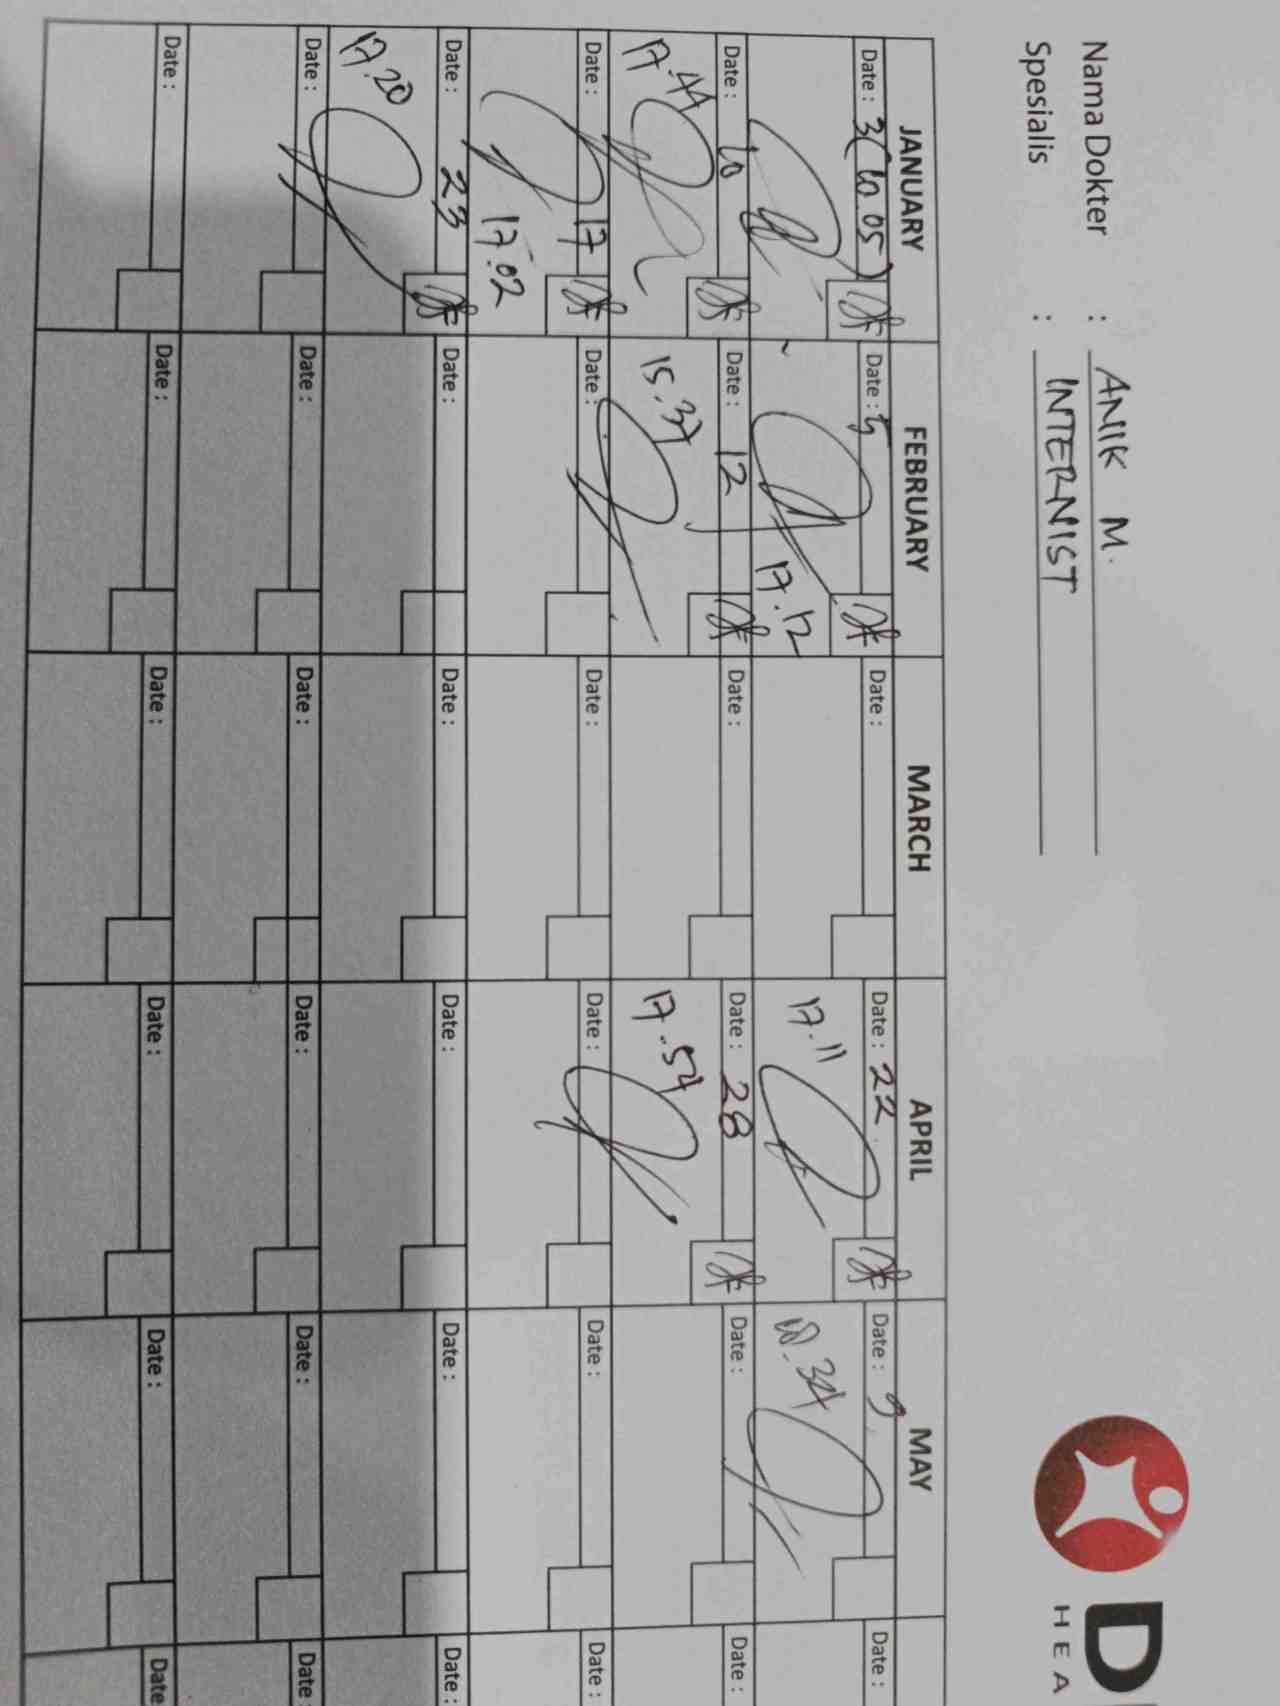 Nama Dokter : ANIK M.
Spesialis : INTERNIST
D
HEA
JANUARY FEBRUARY MARCH APRIL MAY
Date : 3 (10.05) Date : 5 Date : Date : 22 Date : Date :
17.12 17.11 18.34
Date : 10 Date : 12 Date : Date : 28 Date : Date :
17.44 15.37 17.54
Date : 17 Date : Date : Date : Date : Date :
17.02
Date : 23 Date : Date : Date : Date : Date :
17.20
Date : Date : Date : Date : Date : Date :
Date : Date : Date : Date : Date : Date